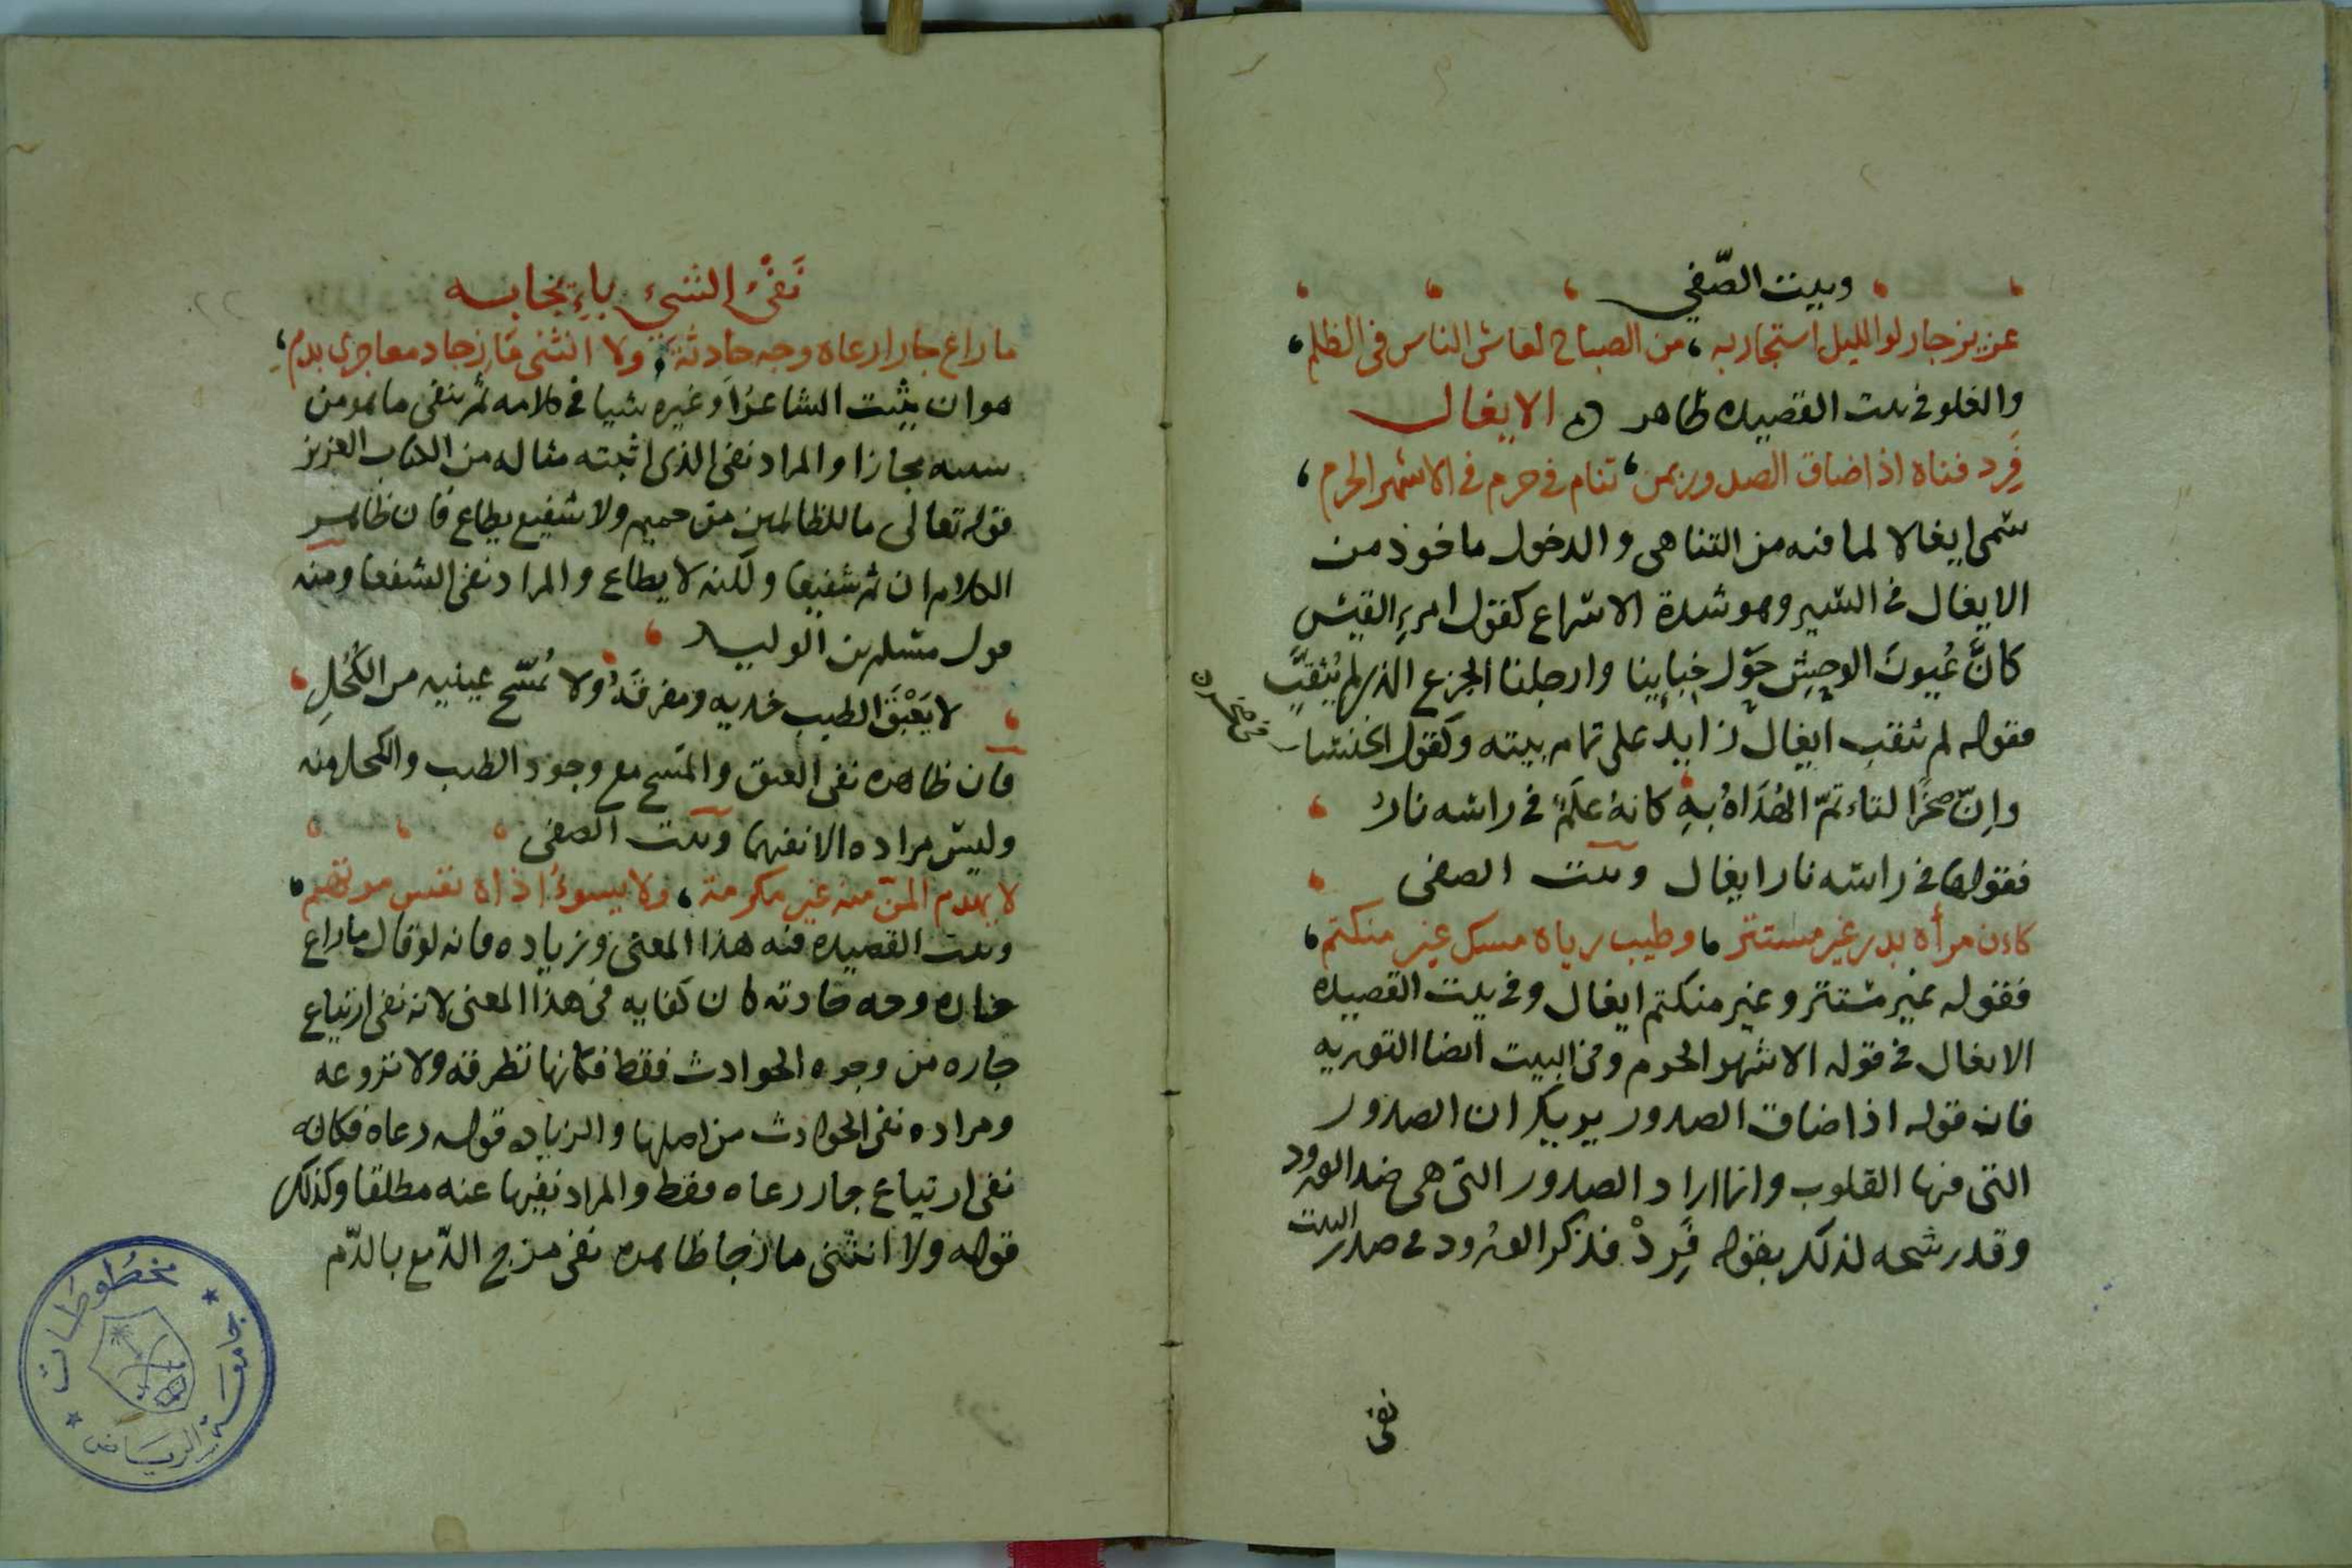 وبيت الصّفي
عزيز جار لو الليل استجار به من الصباح لعاش الناس فى الظلم
والغلو في بيت القصيده ظاهر الايغال
فَرِد فناه اذا ضاق الصدور بمن تنام في حرم في الاشهر الحرم
سمّى ايغالا لما فيه من التناهى والدخول ماخوذ من
الايغال في السّير وهو شدة الاسراع كقول امرءِ القيس
كانَّ عُيونَ الوحشِ حَوْل خِبايِنا وارحلنا الجزع الذى لم يُثقَّبِ
فقوله لم يثقب ايغال زايد على تمام بيته وكقول الخنسا
في صخر
وإنّ صخرًا لتاءتمّ الهُدَاةُ بِهِ كانهُ عَلَمٌ في راسه نارُ
فقولها في راسه نار ايغال وبيت الصفى
كاءن مرآه بدر غير مستتر وطيب رياه مسك غير منكتم
فقوله غير مستتر وغير منكتم ايغال وفي بيت القصيده
الايغال في قوله الاشهر الحرم وفي البيت ايضا التوريه
فان قوله اذا ضاق الصدور يريك ان الصدور
التى فيها القلوب وانما اراد الصدور التى هى ضد الورود
وقد رشحه لذلك بقوله فَرِدْ فذكر الورود في صدر البيت
نفى
نَفْىُ الشىءِ باءِيجابه
ما راع جارا رعاه وجه حادثة ولا انثنى مازجا دمعا جرى بدمِ
هو ان يثبت الشاعر اَو غيره شيا في كلامه ثمّ ينفى ما هو من
سببه مجازا والمراد نفى الذى اثبته مثاله من الكتاب العزيز
قوله تعالى ما للظالمين من حميم ولا شفيع يطاع فان ظاهر
الكلام ان ثم شفيعا ولكنه لا يطاع والمراد نفى الشفيعا ومنه
قول مسلم بن الوليد
لا يَعْبَقُ الطيب خديه ومفرقَهُ ولا يُمسّح عينيه من الكُحْلِ
فان ظاهره نفى العبق والمسح مع وجود الطيب والكحل منه
وليس مراده الا نفيهما وبيت الصفى
لا يهدم المنّ منه غير مكرمة ولا يسوءُ اذاه نفس متهم
وبيت القصيده فيه هذا المعنى وزياده فانه لو قال ما راع
جاره وجه حادثه كان كفايه في هذا المعنى لانه نفى ارتياع
جاره من وجوه الحوادث فقط فكانها تطرقه ولا تروعه
ومراده نفى الحوادث من اصلها والزياده قوله رعاه فكانه
نفى ارتياع جار رعاه فقط والمراد نفيها عنه مطلقا وكذلك
قوله ولا انثنى مازجا ظاهره نفى مزج الدّمع بالدّم
مخطوطات
جامعة الرياض